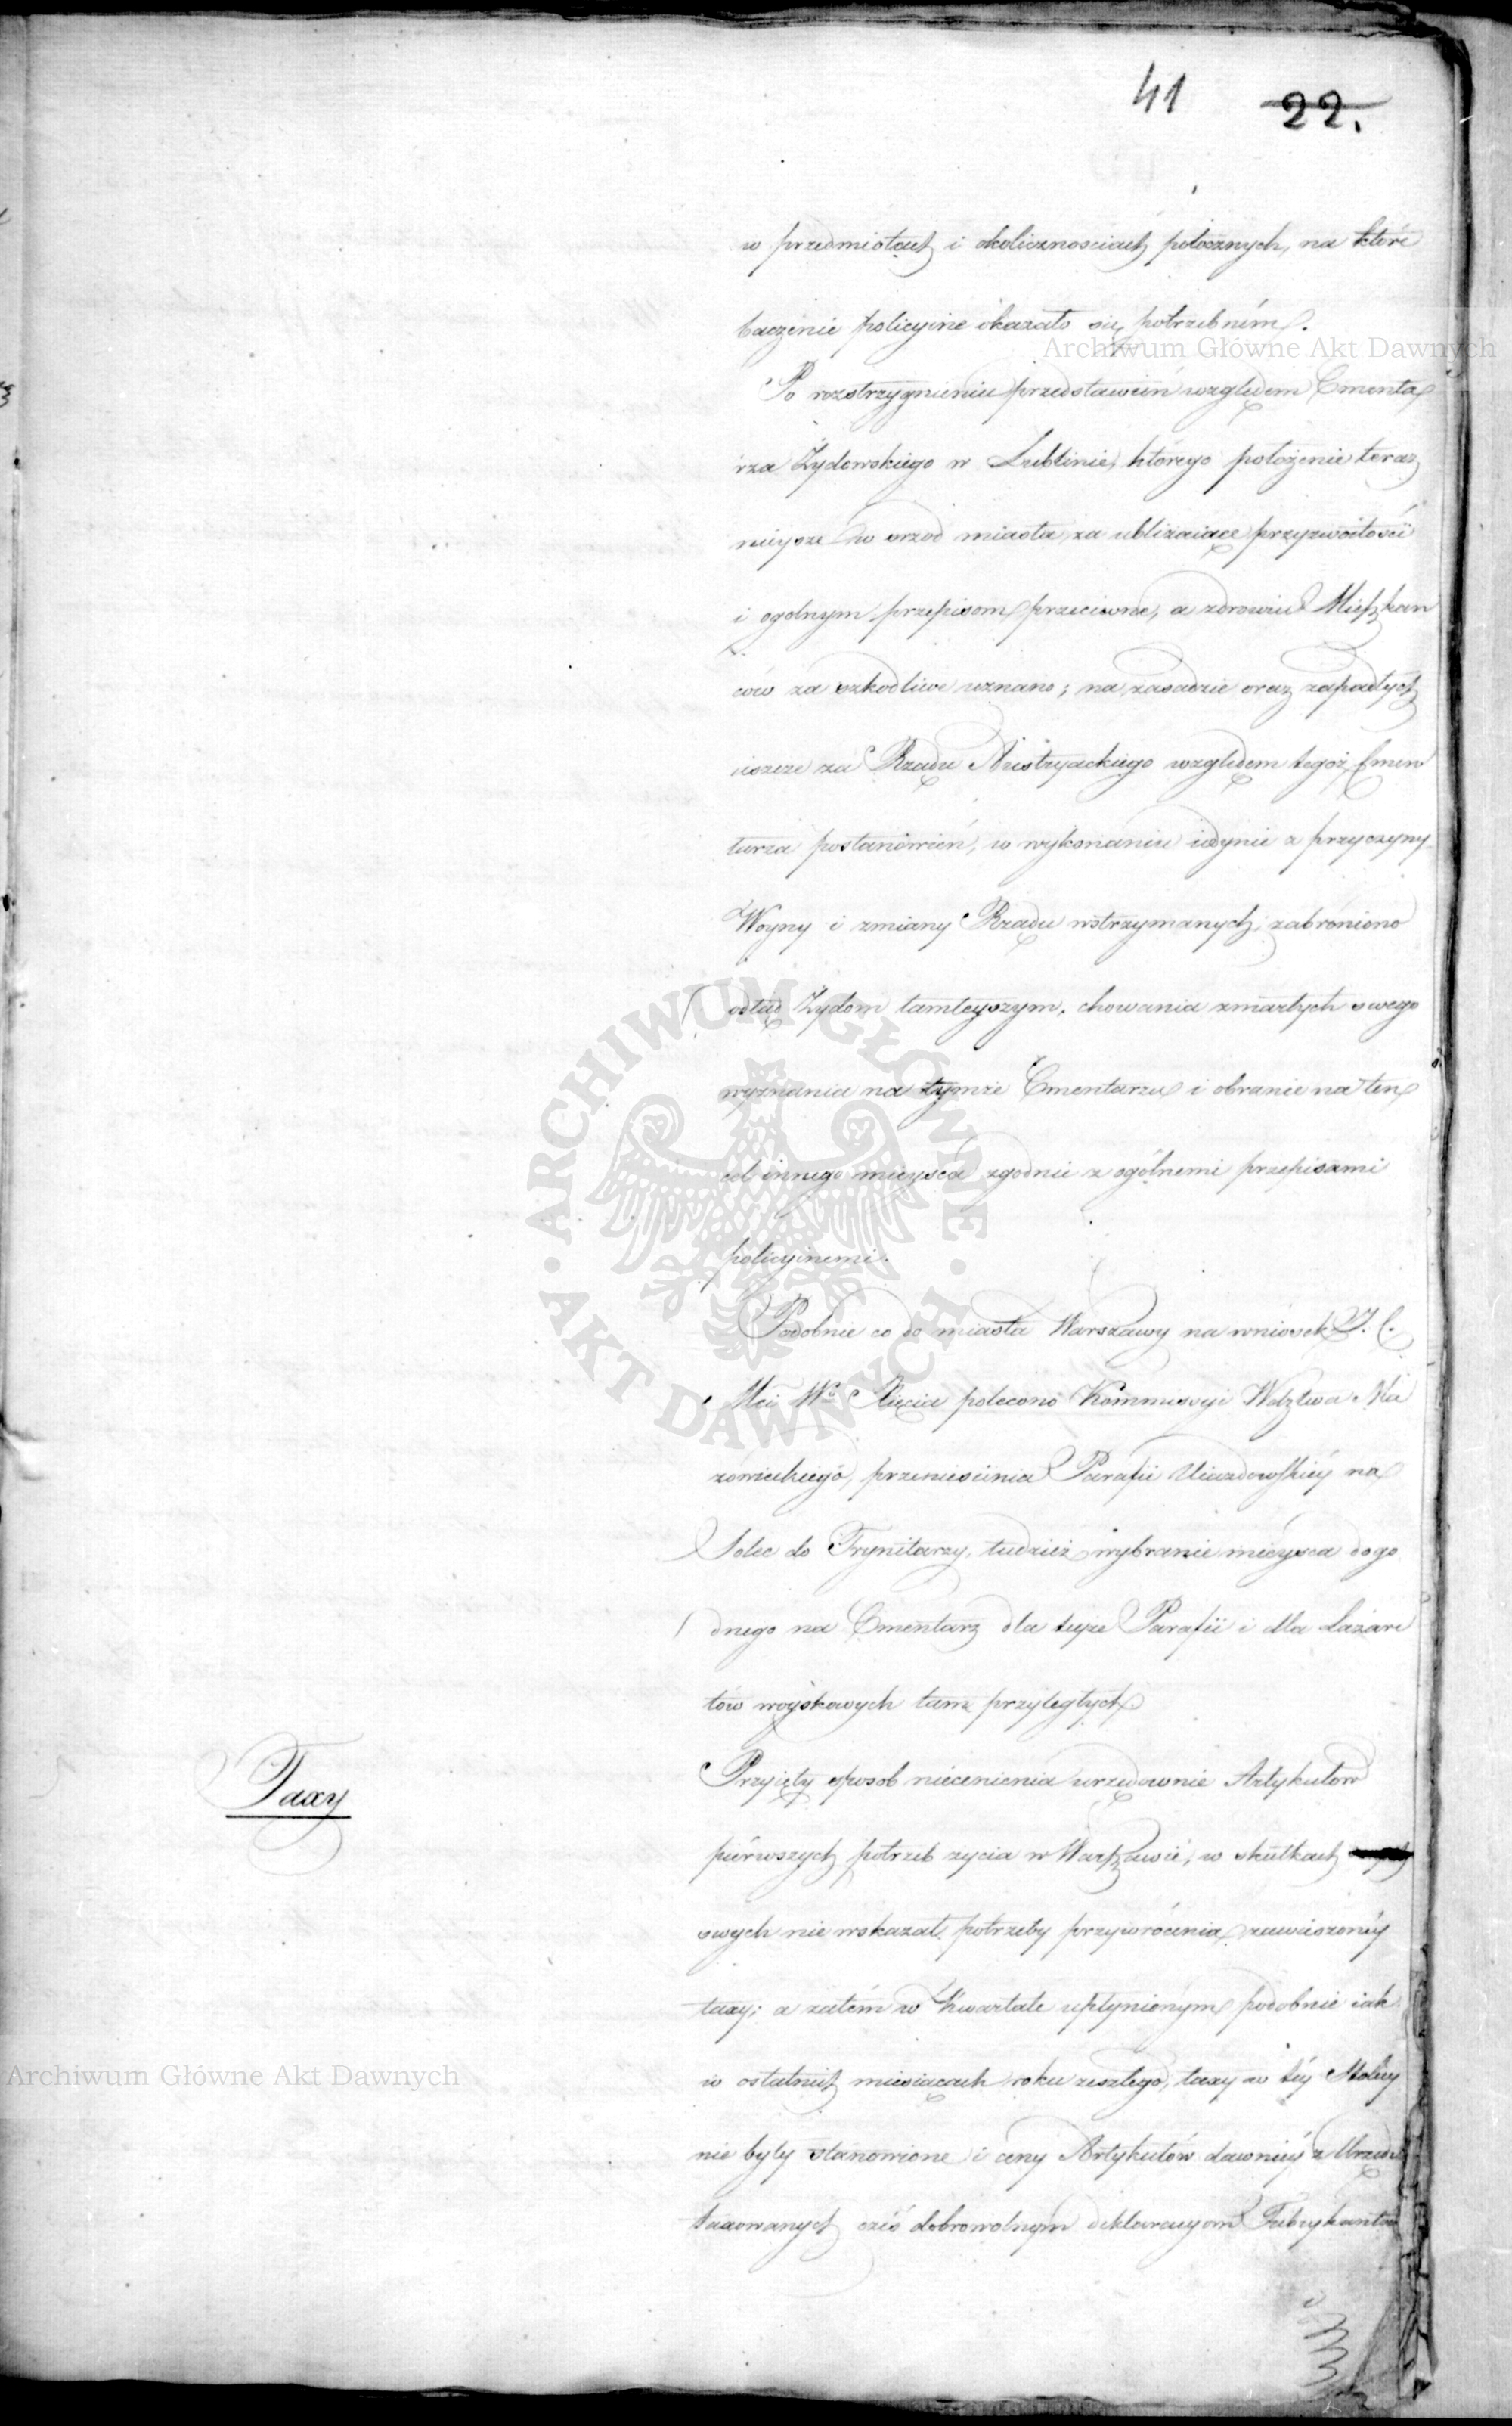 41 22.
w przedmiotach i okolicznosciach potocznych, na które
baczenie policyine okazało się potrzebném.
Po rozstrzygnieniu przedstawień względem Cmenta
rza Żydowskiego w Lublinie, którego położenie teraz
nieysze w srzod miasta, za ubliżaiące przyzwoitości
i ogolnym przepisom przeciwne, a zdrowiu Mieszkan
ców za szkodliwe uznano; na zasadzie oraz zapadłych
ieszcze za Rządu Austryackiego względem tegoż Cmen
tarza postanowień, w wykonaniu iedynie z przyczyny
Woyny i zmiany Rządu wstrzymanych; zabroniono
odtąd Żydom tamteyszym, chowania zmarłych swego
wyznania na tymże Cmentarzu i obranie na ten
cel innego mieysca zgodnie z ogólnemi przepisami
policyinemi.
Podobnie co do miasta Warszawy na wniosek J. C.
Mci Wo Xięcia polecono Kommissyi Wdztwa Ma
zowieckiego, przeniesienia Parafii Uiazdowskiéy na
Solec do Trynitarzy, tudzież wybranie mieysca dogo
dnego na Cmentarz dla teyże Parafii i dla Lazare
tów woyskowych tamże przyległych
Taxy
Przyięty sposob niecenienia urzędownie Artykułow
piérwszych potrzeb zycia w Warszawie, w skutkach
swych nie wskazał potrzeby przywrócenia zawieszonéy
taxy; a zatém w Kwartale upłynionym podobnie iak
w ostatnich miesiącach roku zeszłego, taxy w téy Stolicy
nie były stanowione i ceny Artykułów dawniéy z Urzędu
taxowanych, cześ dobrowolnym deklaracyom Fabrykantów
Archiwum Główne Akt Dawnych
Archiwum Główne Akt Dawnych
ARCHIWUM GŁÓWNE · AKT DAWNYCH ·